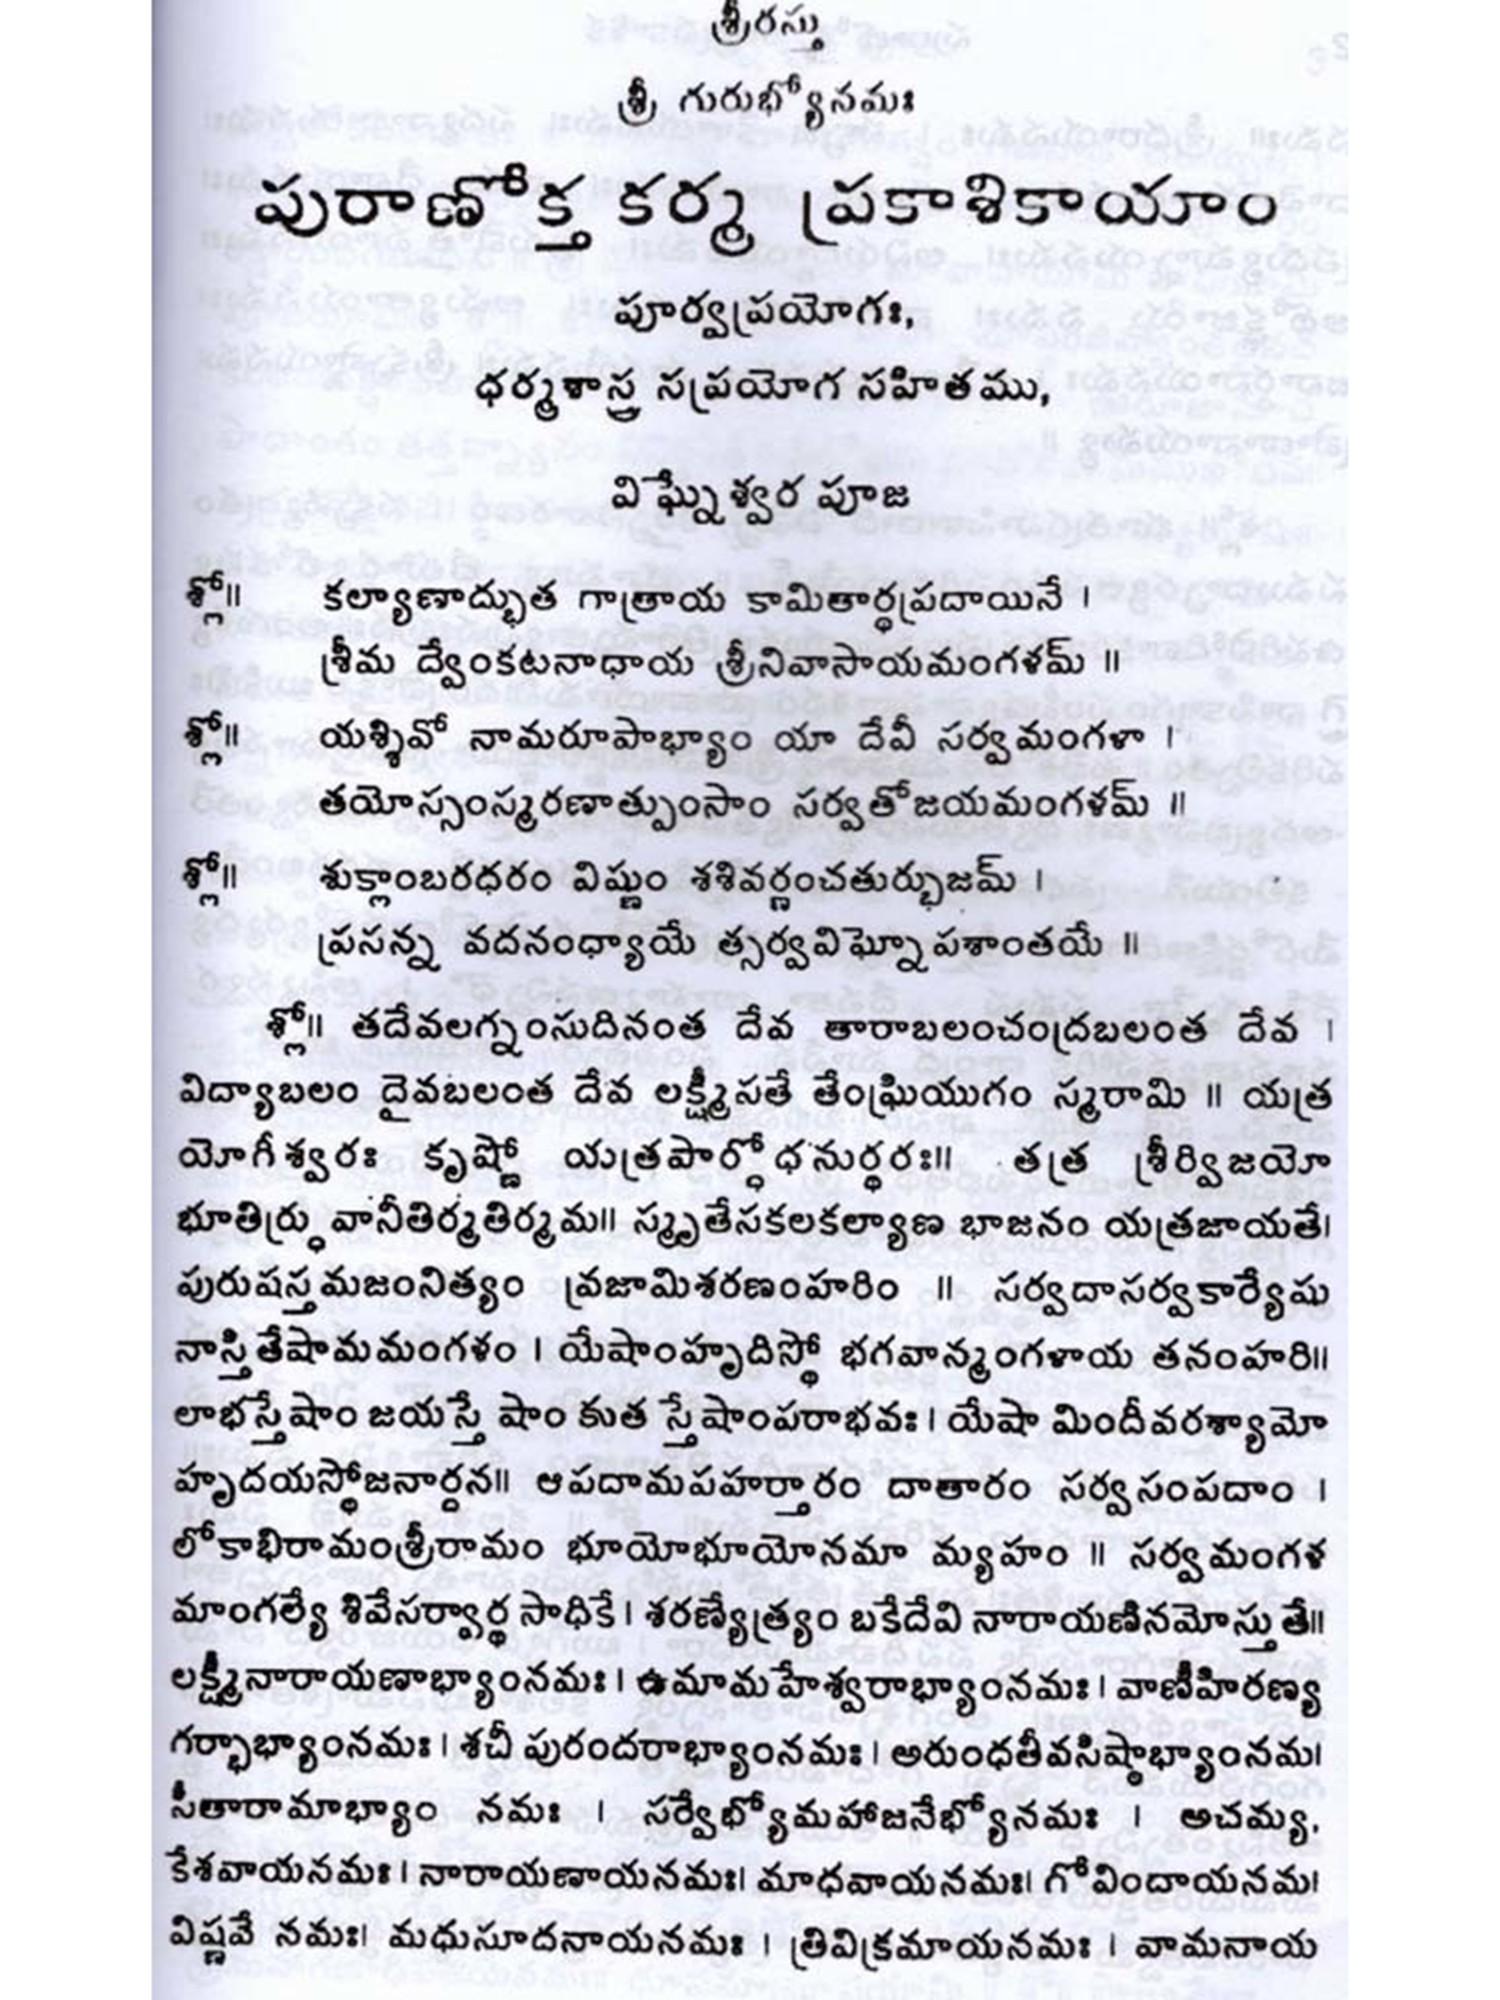 శ్రీరస్తు
శ్రీ గురుభ్యోనమః
పురాణోక్త కర్మ ప్రకాశికాయాం
పూర్వప్రయోగః,
ధర్మశాస్త్ర సప్రయోగ సహితము,
విఘ్నేశ్వర పూజ
శ్లో॥ కల్యాణాద్భుత గాత్రాయ కామితార్థప్రదాయినే ।
శ్రీమ ద్వేంకటనాధాయ శ్రీనివాసాయమంగళమ్ ॥
శ్లో॥ యశ్శివో నామరూపాభ్యాం యా దేవీ సర్వమంగళా ।
తయోస్సంస్మరణాత్పుంసాం సర్వతోజయమంగళమ్ ॥
శ్లో॥ శుక్లాంబరధరం విష్ణుం శశివర్ణంచతుర్భుజమ్ ।
ప్రసన్న వదనంధ్యాయే త్సర్వవిఘ్నోపశాంతయే ॥
శ్లో॥ తదేవలగ్నంసుదినంత దేవ తారాబలంచంద్రబలంత దేవ ।
విద్యాబలం దైవబలంత దేవ లక్ష్మీసతే తేంఘ్రియుగం స్మరామి ॥ యత్ర
యోగీశ్వరః కృష్ణో యత్రపార్థోధనుర్థరః॥ తత్ర శ్రీర్విజయో
భూతిర్ధ్రు వానీతిర్మతిర్మమ॥ స్మృతేసకలకల్యాణ భాజనం యత్రజాయతే।
పురుషస్తమజంనిత్యం వ్రజామిశరణంహరిం ॥ సర్వదాసర్వకార్యేషు
నాస్తితేషామమంగళం । యేషాంహృదిస్థో భగవాన్మంగళాయ తనంహరి॥
లాభస్తేషాం జయస్తే షాం కుత స్తేషాంపరాభవః । యేషా మిందీవరశ్యామో
హృదయస్థోజనార్దన॥ ఆపదామపహర్తారం దాతారం సర్వసంపదాం ।
లోకాభిరామంశ్రీరామం భూయోభూయోనమా మ్యహం ॥ సర్వమంగళ
మాంగల్యే శివేసర్వార్థ సాధికే । శరణ్యేత్ర్యం బకేదేవి నారాయణినమోస్తుతే॥
లక్ష్మీనారాయణాభ్యాంనమః । ఉమామహేశ్వరాభ్యాంనమః । వాణీహిరణ్య
గర్భాభ్యాంనమః । శచీ పురందరాభ్యాంనమః । అరుంధతీవసిష్ఠాభ్యాంనమ।
సీతారామాభ్యాం నమః । సర్వేభ్యోమహాజనేభ్యోనమః । అచమ్య,
కేశవాయనమః । నారాయణాయనమః। మాధవాయనమః। గోవిందాయనమ।
విష్ణవే నమః। మధుసూదనాయనమః । త్రివిక్రమాయనమః । వామనాయ